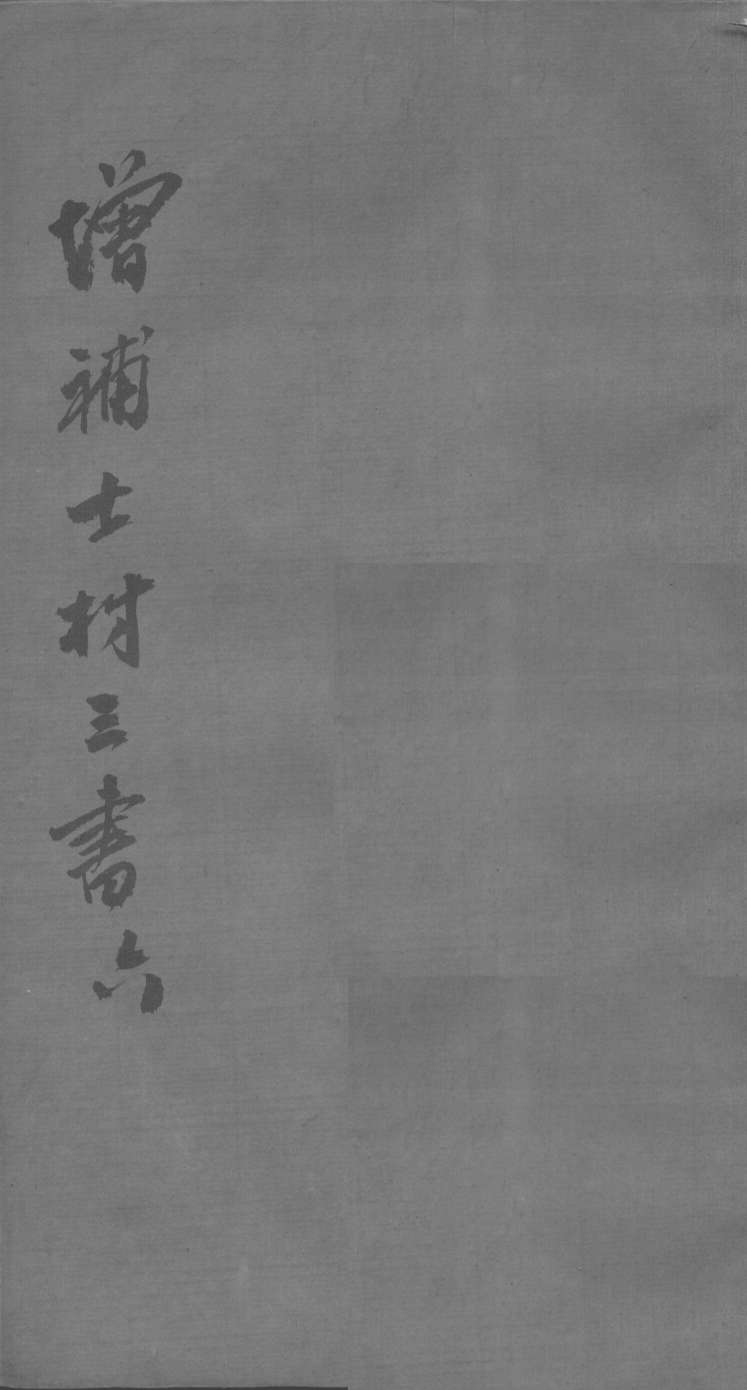 增補士材三書六